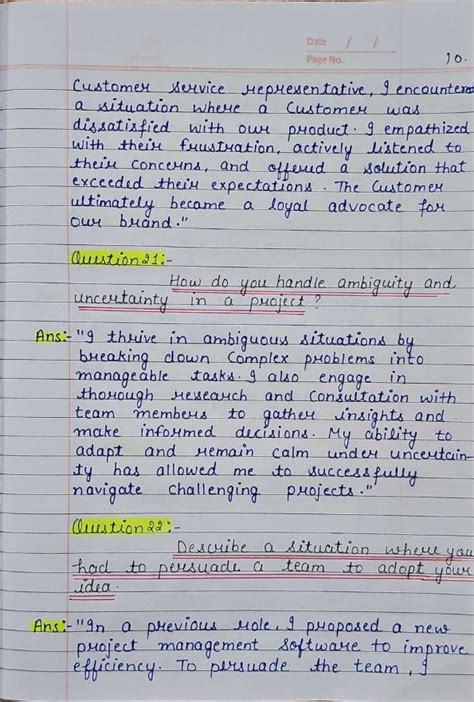 Date / /
Page No.
10.
Customer service representative, I encountered
a situation where a Customer was
dissatisfied with our product. I empathized
with their frustration, actively listened to
their concerns, and offered a solution that
exceeded their expectations. The Customer
ultimately became a loyal advocate for
our brand."
Question 21:-
How do you handle ambiguity and
uncertainty in a project?
Ans:- "I thrive in ambiguous situations by
breaking down Complex problems into
manageable tasks. I also engage in
thorough research and Consultation with
team members to gather insights and
make informed decisions. My ability to
adapt and remain calm under uncertain-
ty has allowed me to successfully
navigate challenging projects."
Question 22:-
Describe a situation where you
had to persuade a team to adopt your
idea.
Ans:- "In a previous role, I proposed a new
project management software to improve
efficiency. To persuade the team, I